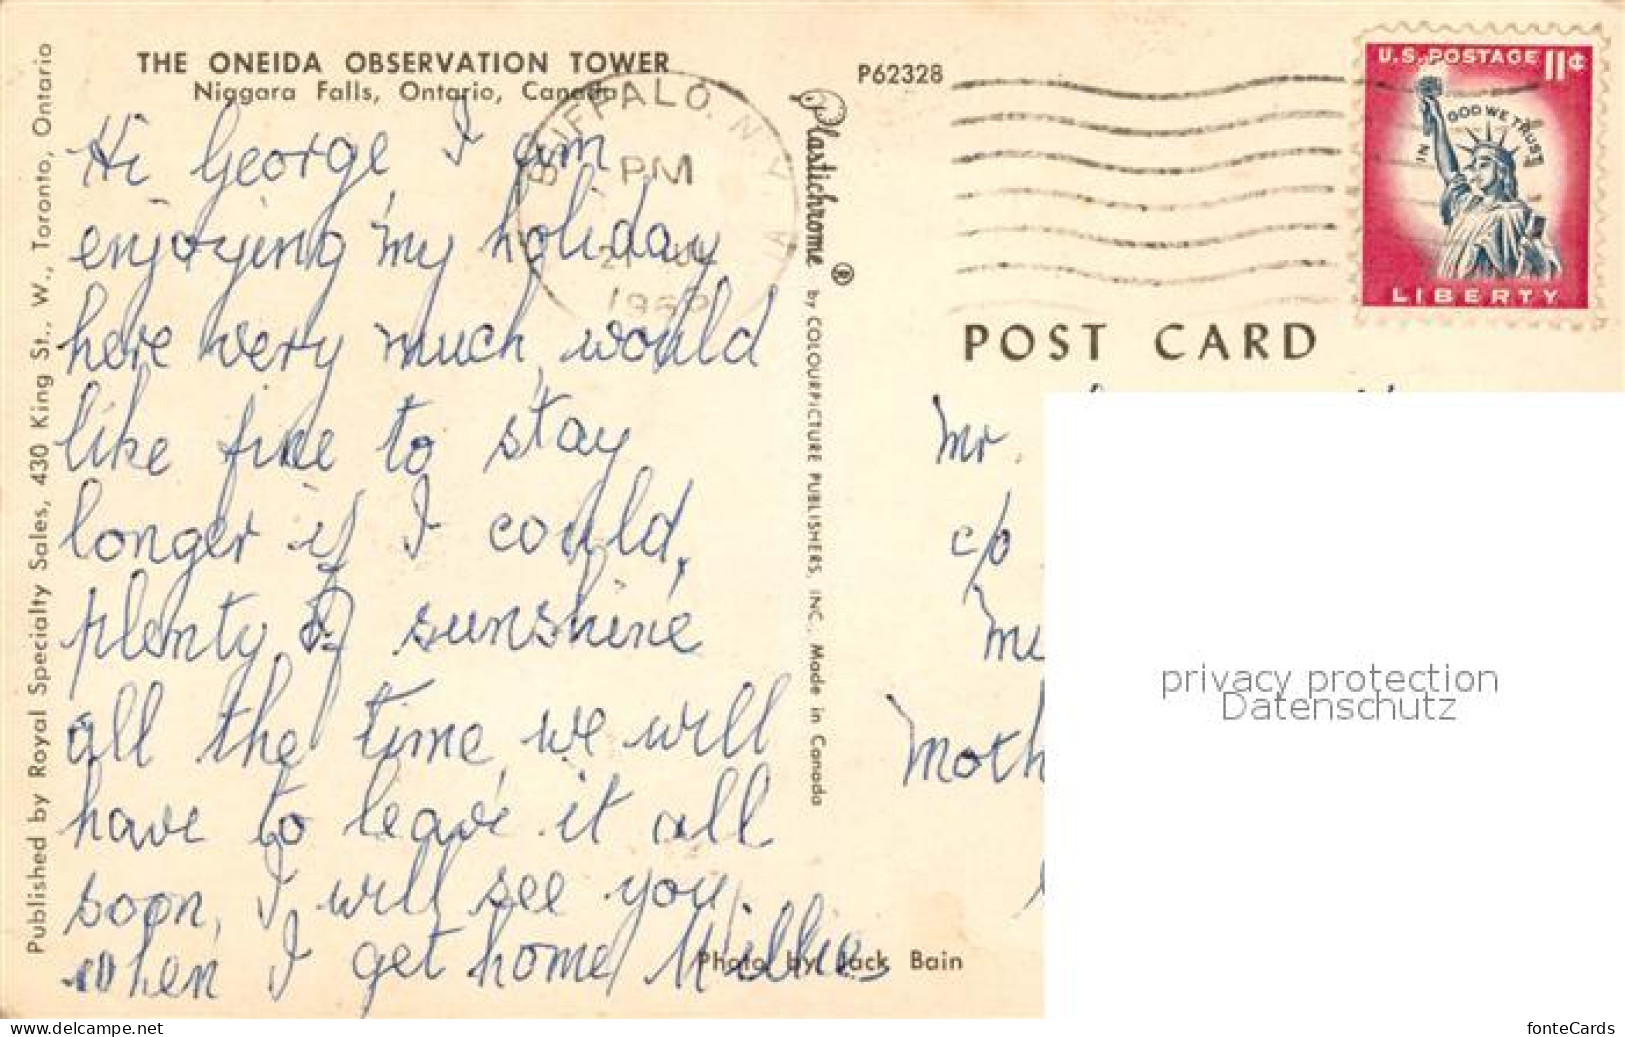 THE ONEIDA OBSERVATION TOWER
Niagara Falls, Ontario, Canada
P62328
BUFFALO, N.Y.
PM
U.S. POSTAGE 11¢
IN GOD WE TRUST
LIBERTY
POST CARD
Hi George, I am
enjoying my holiday
here very much, would
like fine to stay
longer if I could,
plenty of sunshine
all the time, we will
have to leave it all
soon, I will see you
when I get home Millie
Mr.
c/o
Moth
Published by Royal Specialty Sales, 430 King St., W., Toronto, Ontario
Plastichrome ® by COLOURPICTURE PUBLISHERS, INC. Made in Canada
Photo by Jack Bain
privacy protection
Datenschutz
www.delcampe.net
fonteCards